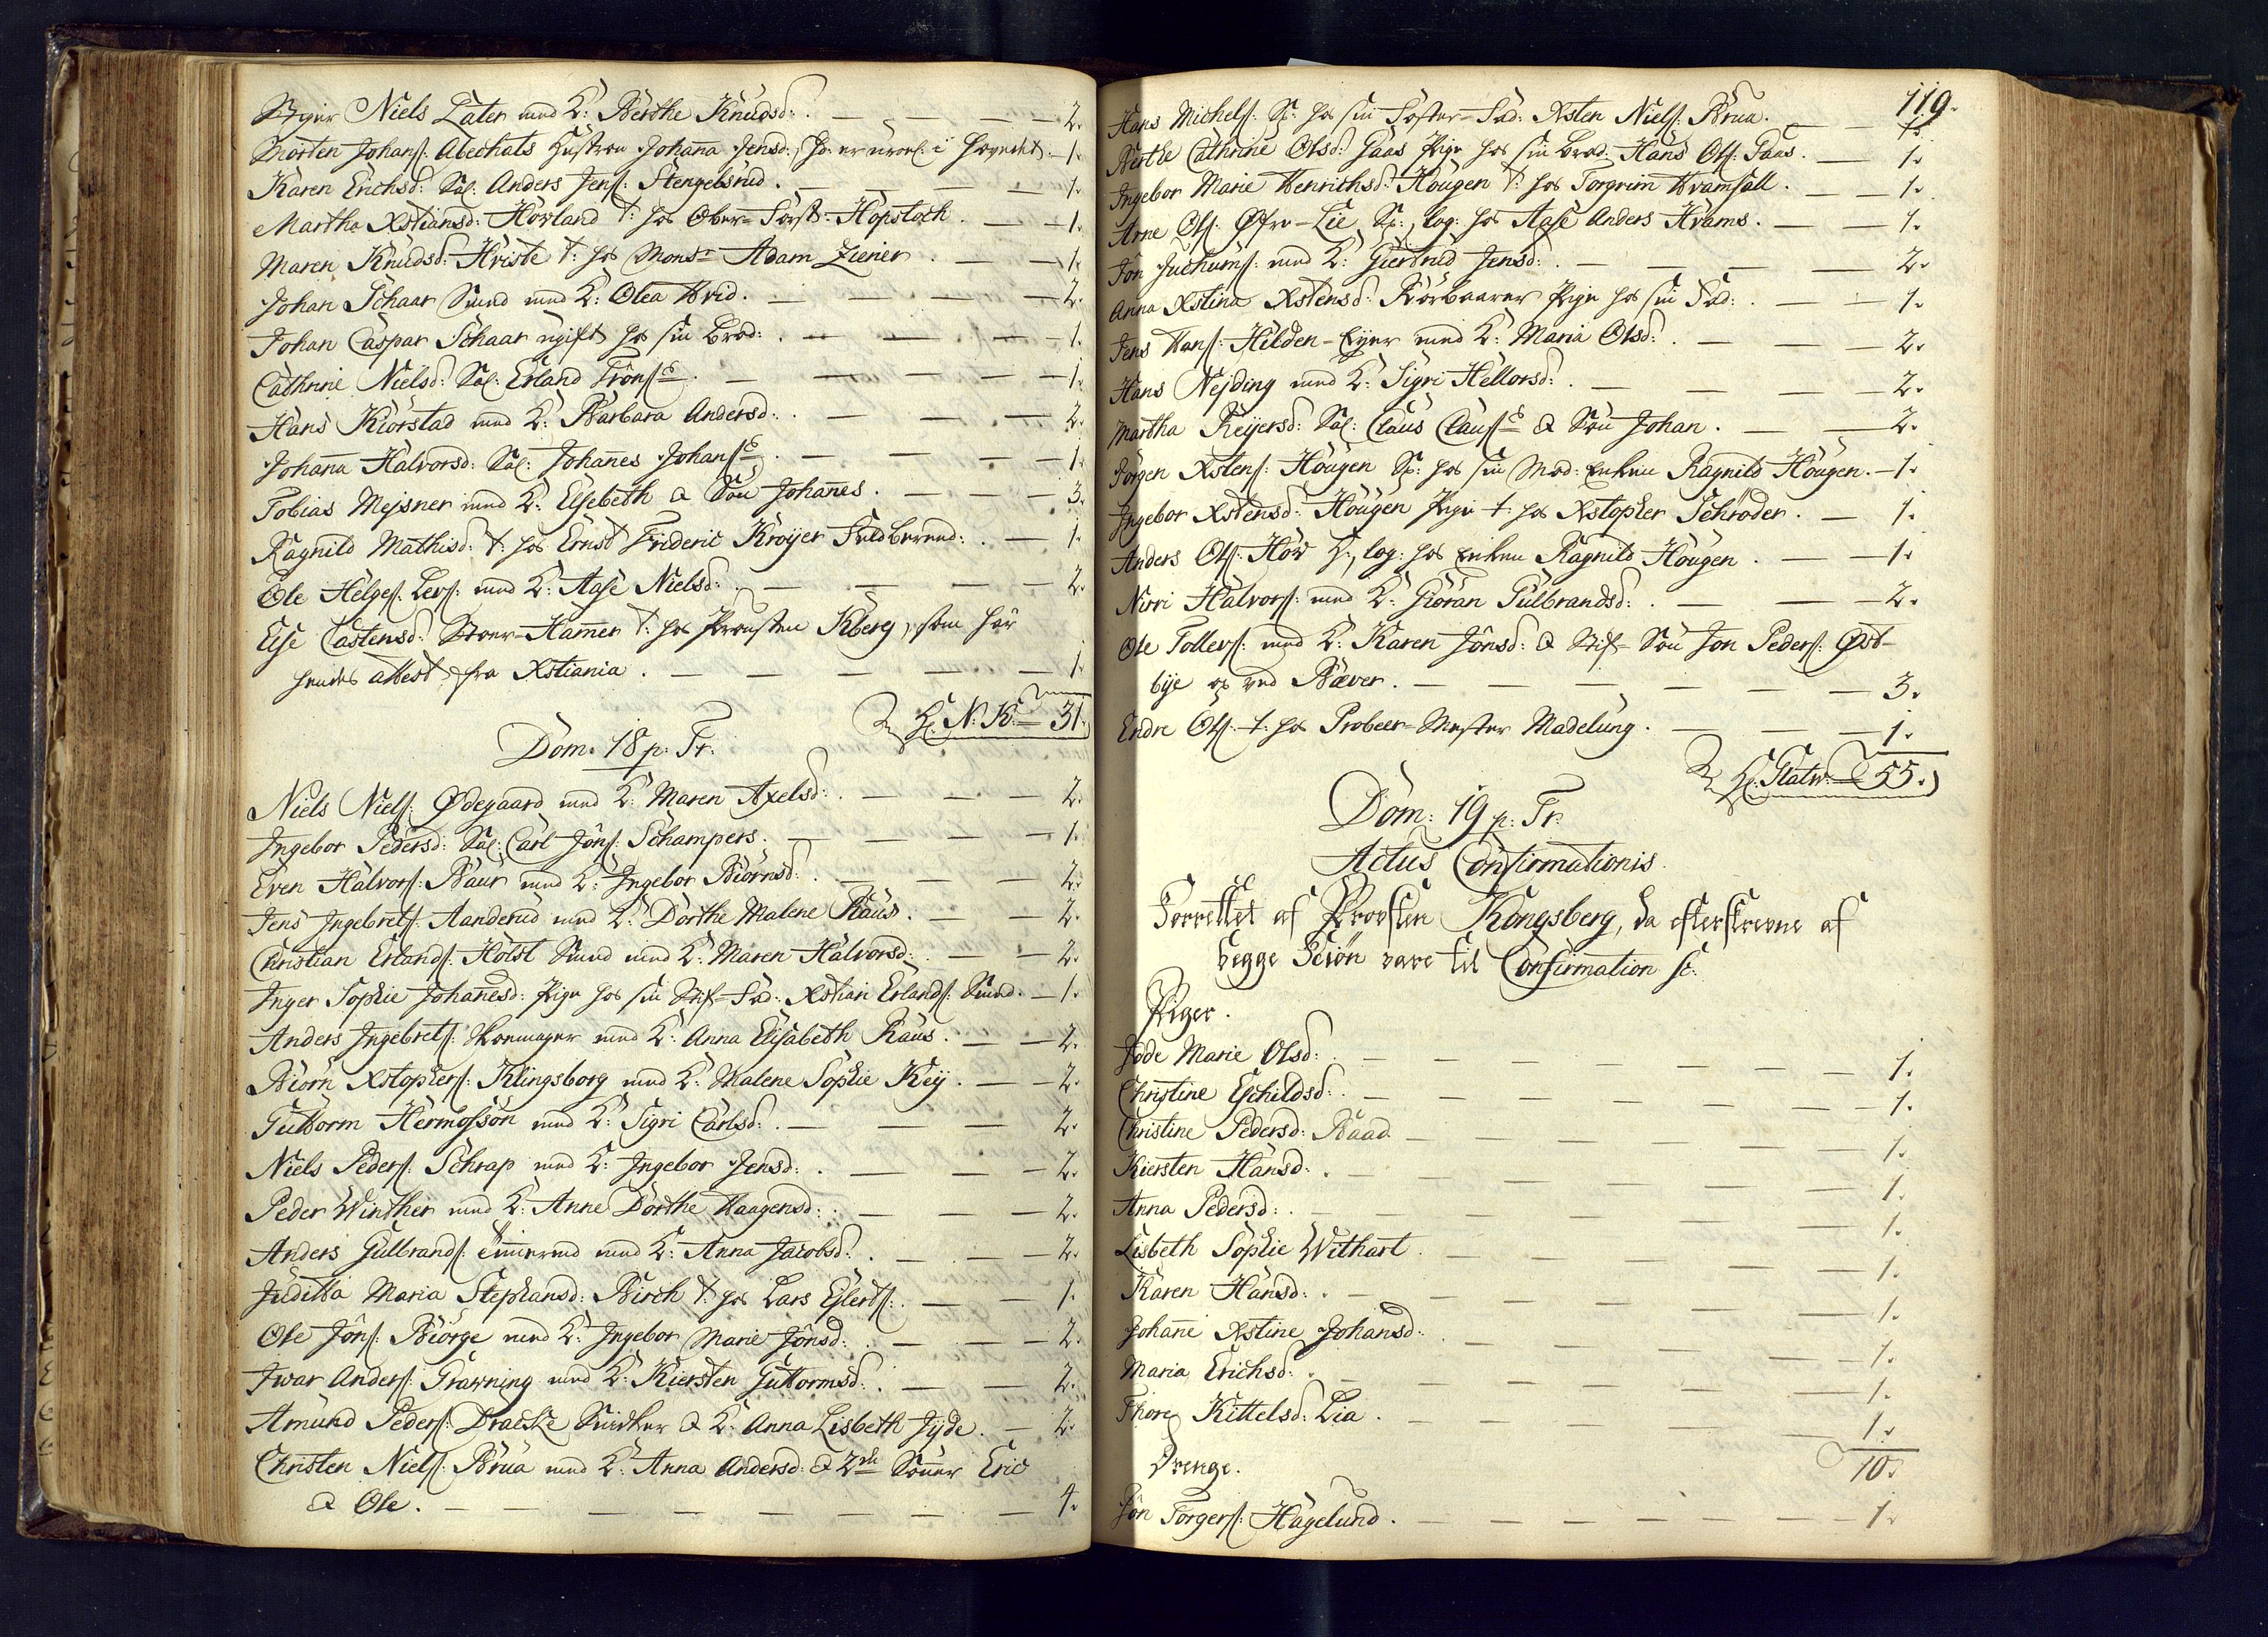 Niels Later med K: Berthe Knudsd: . — — — 2.
Morten Johans: Abechats Hustroe Johanna Jensd:, i Hovedet. — 1.
Karen Erichsd: Sal: Anders Jens: Stengelsrud. — — 1.
Martha Xstiansd: Hovland t: hos Ober-Forst: Hopstock. — — 1.
Maren Knudsd: Hviste t: hos Mons:r Adam Ziener. — — 1.
Johan Schaar Smed med K: Olea Hvid. — — — 2.
Johan Caspar Schaar ugift hos sin Brod: . — — — 1.
Cathrine Nielsd: Sal: Erland — — — 1.
Hans Kiorstad med K: Barbara Andersd: . — — 2.
Johanna Halvorsd: Sal: Johanes Johans: — — — 1.
Tobias Mejsner med K: Elsebeth & Søn Johannes. — — — 3.
Ragnild Mathisd: t: hos Ernst Frideric Krøyer Feldbered: . — 1.
Ole Helges: med K: Aase Nielsd: . — — — 2.
Else Castensd: Stoer-Hamer t: hos Provsten Kberg, som har
hendes attest fra Xstiania. — — — 1.
Hr. N: K: — 31.
Dom: 18 p: Tr:
Niels Niels: Ødegaard med K: Maren Axelsd: . — — 2.
Ingebor Pedersd: Sal: Carl Jons: Schampers. — — — 1.
Even Halvors: Baur med K: Ingebor Biørnsd: . — — — 2.
Jens Ingebrets: Aanderud med K: Dorthe Malene Raus. — — 2.
Christian Erlands: Holst Smed med K: Maren Halvorsd: . — — 2.
Inger Sophie Johanesd: Pige hos sin Stif-Fad: Xstian Erlands: Smed. — 1.
Anders Ingebrets: Skomager med K: Anna Elisabeth Raus. — — 2.
Biørn Xstophers: Klingsborg med K: Malene Sophie Key. — — 2.
Guttorm Hermosson med K: Sigri Carlsd: . — — — 2.
Niels Peders: Schrap med K: Ingebor Jensd: . — — — 2.
Peder Winther med K: Anne Dorthe Haagensd: . — — — 2.
Anders Gulbrands: med K: Anna Jacobsd: . — — — 2.
Juditha Maria Stephansd: Birch t: hos Lars Eylerts: . — — 1.
Ole Jons: Biørge med K: Ingebor Marie Jonsd: . — — — 2.
Iwar Anders: Grawning med K: Kiersten Guttormsd: . — — 2.
Amund Peders: Draeske Snidker & K: Anna Lisbeth Jyde. — 2.
Christen Niels: Brua med K: Anna Andersd: & 2de Sønner Eric
& Ole. — — — — — — 4.
119.
Hans Michels: S: hos sin Foster-Fad: Xsten Niels: Brua. — — 1.
Berthe Cathrine Olsd: Gaas Pige hos sin Brod: Hans Ols: Gaas. — 1.
Ingebor Marie Henrichsd: Hougen t: hos Torgrim Hvamsall. — 1.
Arne Ols: Øfre-Lie S:, log: hos Aase Anders Hvams. — — 1.
Jon Juchums: med K: Giertrud Jensd: . — — — 2.
Anna Xstina Xstensd: Pige hos sin Fad: . — — 1.
Jens Hans: Hilden-Eyer med K: Maria Olsd: . — — — 2.
Hans Nejding med K: Sigri Hellorsd: . — — — 2.
Martha Reyersd: Sal: Claus Claus: & Søn Johan. — — 2.
Jørgen Xstens: Hougen S: hos sin Mod: Enken Ragnild Hougen. — 1.
Ingebor Xstensd: Hougen Pige t: hos Xstopher Schrøder. — 1.
Anders Ols: Hov S:, log: hos Enken Ragnild Hougen. — — 1.
Nirri Halvors: med K: Giøran Gulbrandsd: . — — — 2.
Ole Tollevs: med K: Karen Jonsd: & Stif-Søn Jon Peders: Øst-
bye op ved Bæver. — — — — — — 3.
Endre Ols: t: hos Probeer-Mester Madelung. — — — 1.
Hr. — 55.
Dom: 19 p: Tr:
Actus Confirmationis.
Forrettet af Provsten Kongsberg, da efterskrevne af
begge Kiøn vare til Confirmation sc:
Piger.
Jode Marie Olsd: . — — — — 1.
Christine Eschildsd: . — — — — 1.
Christine Pedersd: Baad — — — — 1.
Kiersten Hansd: . — — — — 1.
Anna Pedersd: . — — — — 1.
Lisbeth Sophie Withart. — — — — 1.
Karen Hansd: . — — — — 1.
Johane Xstine Johansd: . — — — — 1.
Maria Erichsd: . — — — — 1.
Thore Kittelsd: Lia. — — — — 1.
10.
Drenge.
Jon Torgers: Hagelund. — — — — 1.